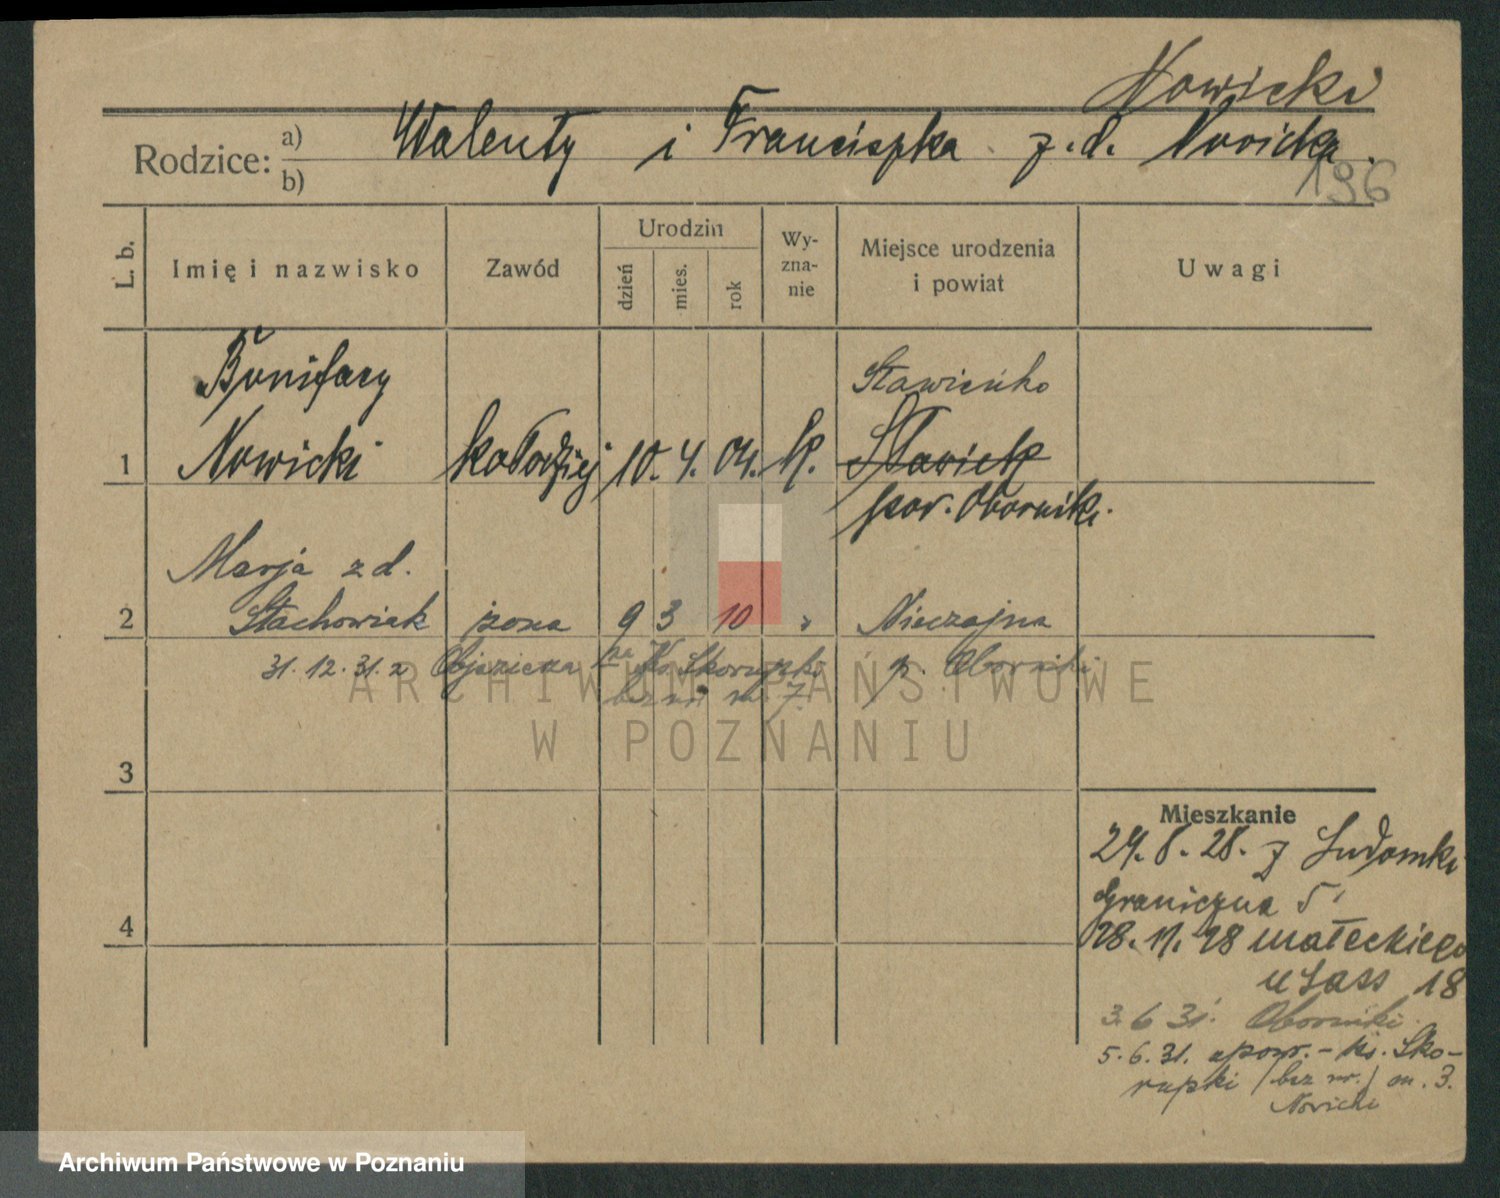 Nowicki
Rodzice: a) Walenty i Franciszka z.d. Nowicka.
b)
196
L. b.
Imię i nazwisko
Zawód
Urodzin
dzień
mies.
rok
Wy-
zna-
nie
Miejsce urodzenia
i powiat
Uwagi
Bonifacy
Stawieńko
1 Nowicki kołodziej 10. 4. 04. K. Stawick
pow. Oborniki.
Marja z d.
2 Stachowiak żona 9 3 10 " Nieczajna
31.12.31. z Objezierza na Ks Skorupki p. Oborniki
bez nr m. 7.
ARCHIWUM PAŃSTWOWE
W POZNANIU
3
Mieszkanie
29. 8. 28. z Ludomki
Graniczna 5
4
28. 11. 28 Małeckiego
u Lass 18
3. 6 31. Oborniki
5. 6. 31. spow. – ks. Sko-
rupki (bez nr.) m. 3.
Nowicki
Archiwum Państwowe w Poznaniu